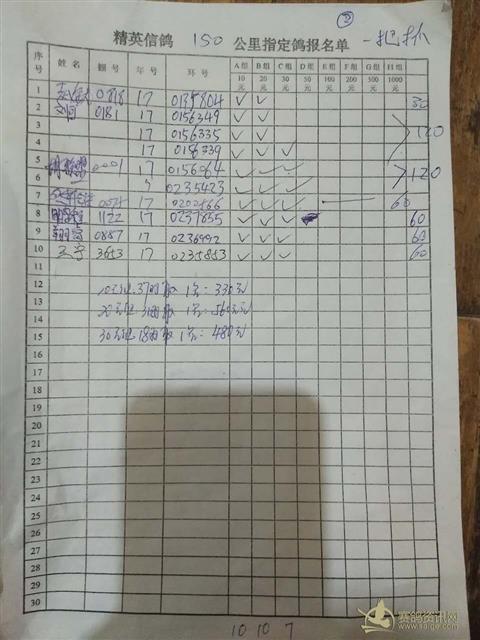 ②
精英信鸽 150 公里指定鸽报名单 一把抓
序号 姓名 棚号 年号 环号 A组10元 B组20元 C组30元 D组50元 E组100元 F组200元 G组500元 H组1000元
1 0818 17 0135804 ✓ ✓ 30
2 0181 17 0156349 ✓ ✓
3 17 0156335 ✓ ✓ 120
4 17 ✓ ✓ ✓
5 0001 17 0156064 ✓ ✓ ✓ 120
6 0235423 ✓ ✓ ✓
7 17 ✓ ✓ ✓ 60
8 1122 17 0237655 ✓ ✓ ✓ 60
9 0887 17 0236992 ✓ ✓ ✓ 60
10 王宇 3653 17 0235853 ✓ ✓ ✓ 60
11
12 10元 37羽取 1名: 元
13 20元 1名: 560元
14
15 30元 18羽取 1名: 480元
16
17
18
19
20
21
22
23
24
25
26
27
28
29
30
10 10 7
赛鸽资讯网
www.saige.com